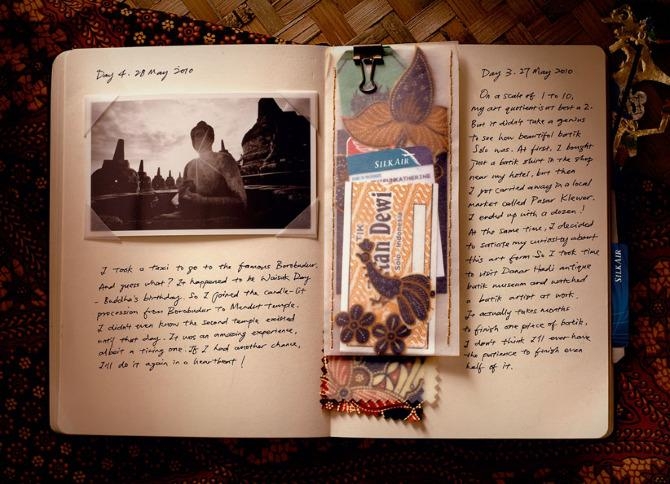 Day 4. 28 May 2010
I took a taxi to go to the famous Borobudur.
And guess what? It happened to be Waisak Day
- Buddha's birthday. So I joined the candle-lit
procession from Borobudur to Mendut Temple.
I didn't even know the second temple existed
until that day. It was an amazing experience,
albeit a tiring one. If I had another chance,
I'll do it again in a heartbeat!
SILKAIR
KATHERINE
TIK
Dewi
Solo-Indonesia
Day 3. 27 May 2010
On a scale of 1 to 10,
my art quotient is at best a 2.
But it didn't take a genius
to see how beautiful batik
Solo was. At first, I bought
just a batik shirt in the shop
near my hotel, but then
I got carried away in a local
market called Pasar Klewer.
I ended up with a dozen!
At the same time, I decided
to satisfy my curiosity about
this art form. So I took time
to visit Danar Hadi antique
batik museum and watched
a batik artist at work.
It actually takes months
to finish one piece of batik.
I don't think I'll ever have
the patience to finish even
half of it.
SILKAIR